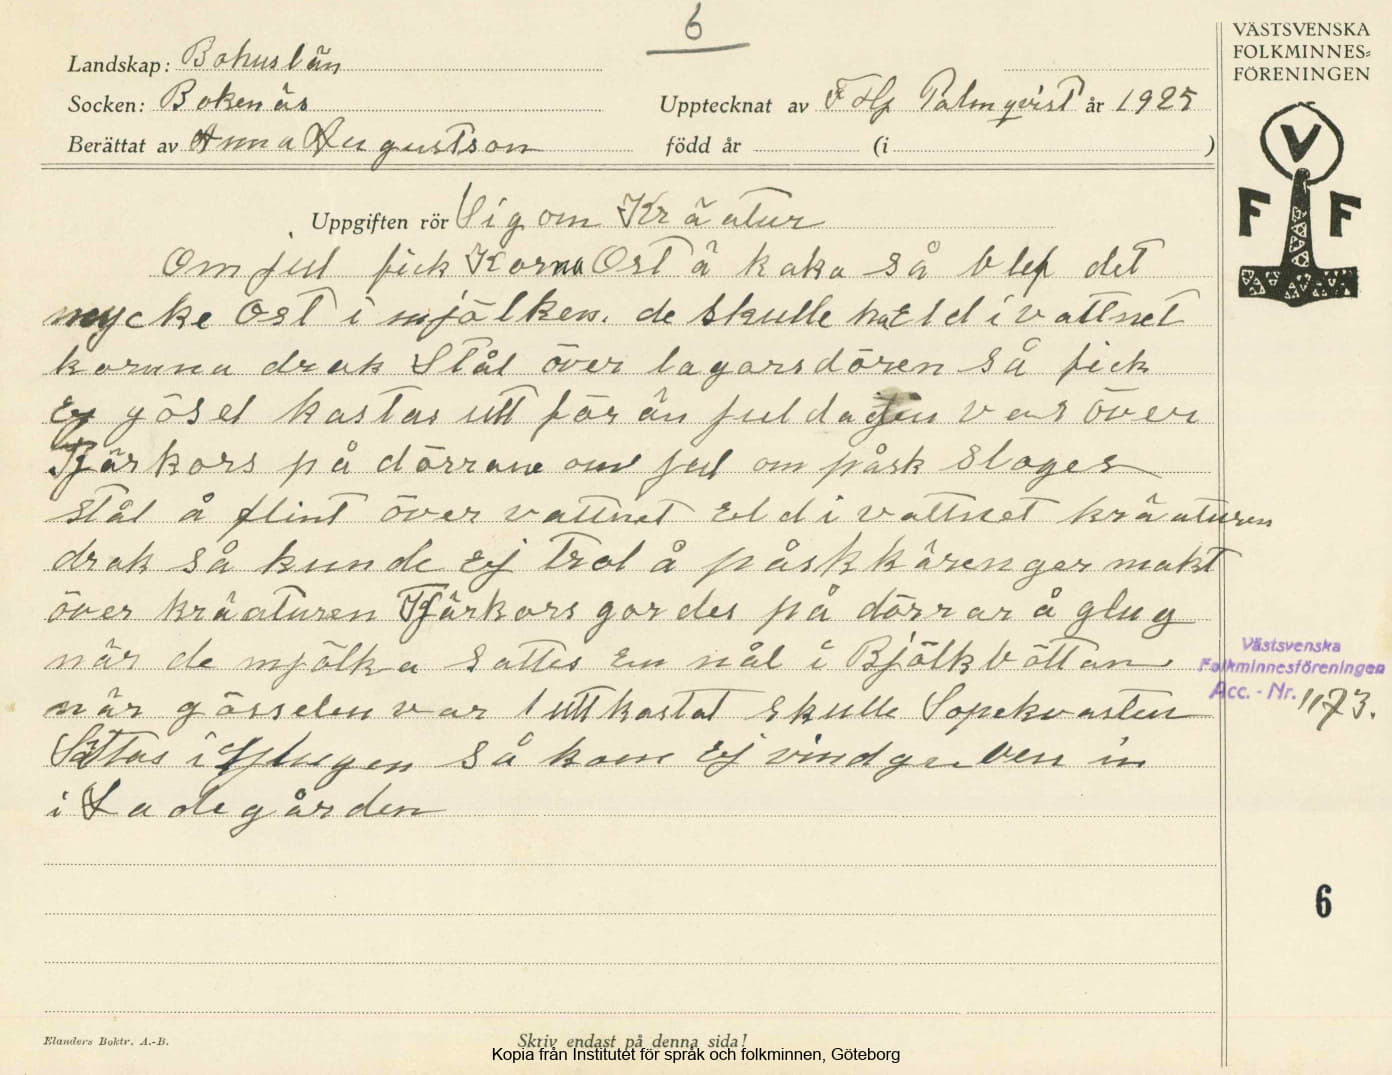 6
VÄSTSVENSKA
FOLKMINNES=
FÖRENINGEN
Landskap: Bohuslän
Socken: Bokenäs
Upptecknat av F Hj Palmqvist år 1925
Berättat av Anna Augustson
född år (i )
V
F F
Uppgiften rör Vig om Kräatur
Om jul fick Korna Ost å kaka så blef det
mycke Ost i mjölken. de skulle ha Eld i vattnet
kornna drak Stål över lagarsdören så fick
Ej gösel kastas utt för än juldagen var över
Tjärkors på dörrane om jul om påsk Sloges
stål å flint över vattnet Eld i vattnet kräaturen
drak så kunde Ej Trol å påskkärenger makt
över kräaturen Tjärkors gordes på dörrar å glug
när de mjölka sattes En nål i Bjölkböttan
när gösselen var uttkastat skulle Sopekvasten
Sättas i Glugen så kom Ej vindgasven in
i Ladegården
Västsvenska
Folkminnesföreningen
Acc. - Nr. 1173.
6
Elanders Boktr. A.-B.
Skriv endast på denna sida!
Kopia från Institutet för språk och folkminnen, Göteborg